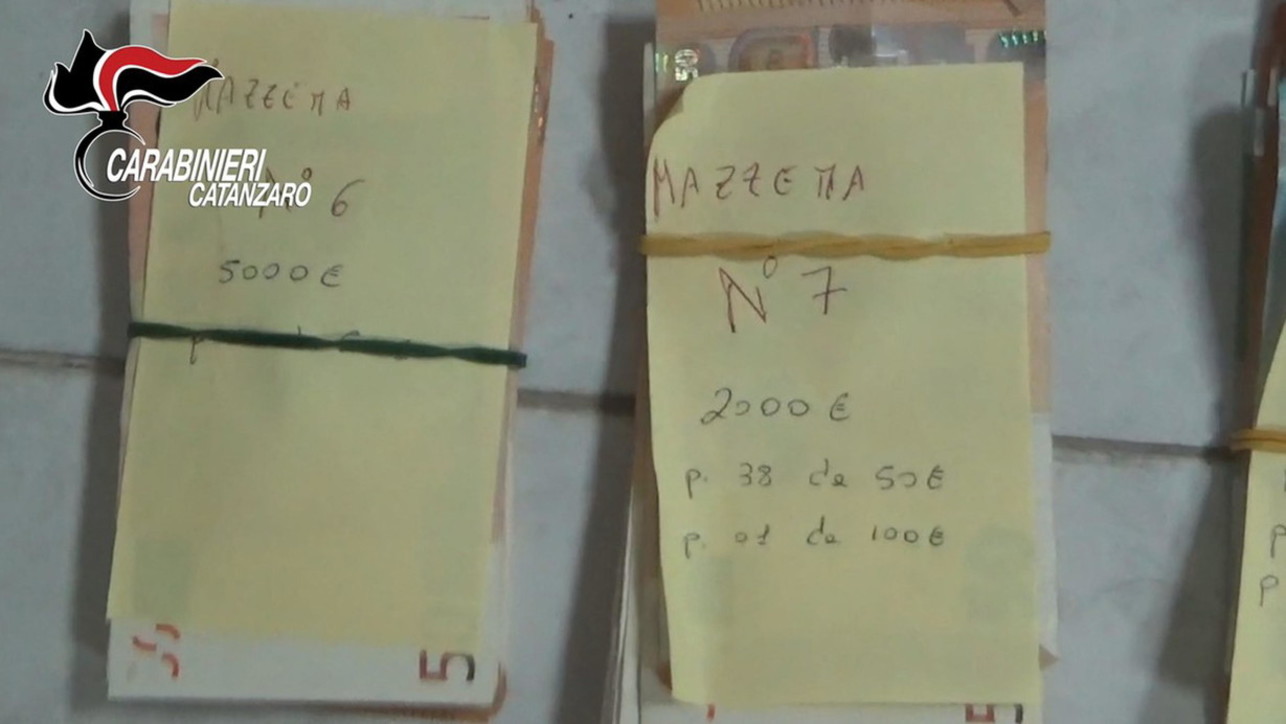 CARABINIERI
CATANZARO
MAZZETTA
N° 6
5000 €
5
MAZZETTA
N° 7
2000 €
p. 38 da 50 €
p. 01 da 100 €
p
p